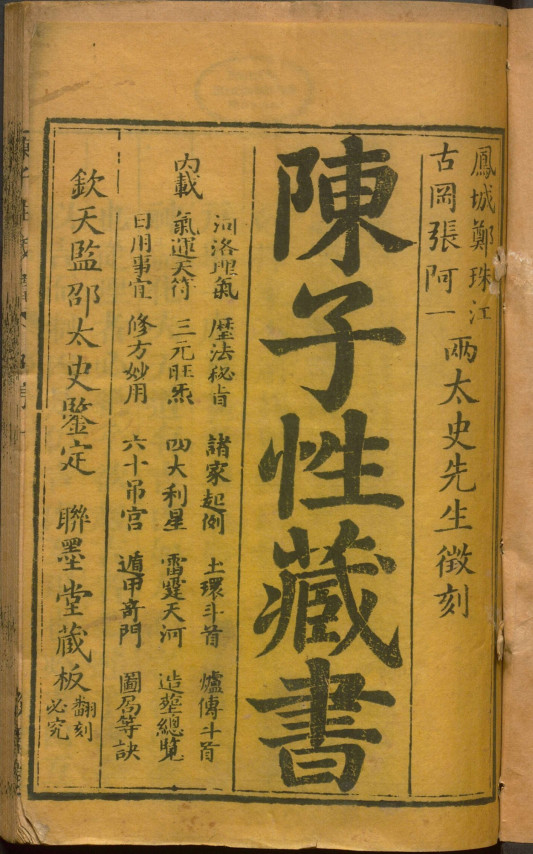 鳳城鄭珠江
古岡張阿一
兩太史先生徵刻
陳子性藏書
內載
河洛理氣 歷法秘旨 諸家起例 土環斗首 爐傳斗首
氣運天符 三元旺炁 四大利星 雷霆天河 造塟總覽
日用事宜 修方妙用 六十吊宮 遁甲奇門 圖局等訣
欽天監邵太史鑒定 聯墨堂藏板
翻刻
必究